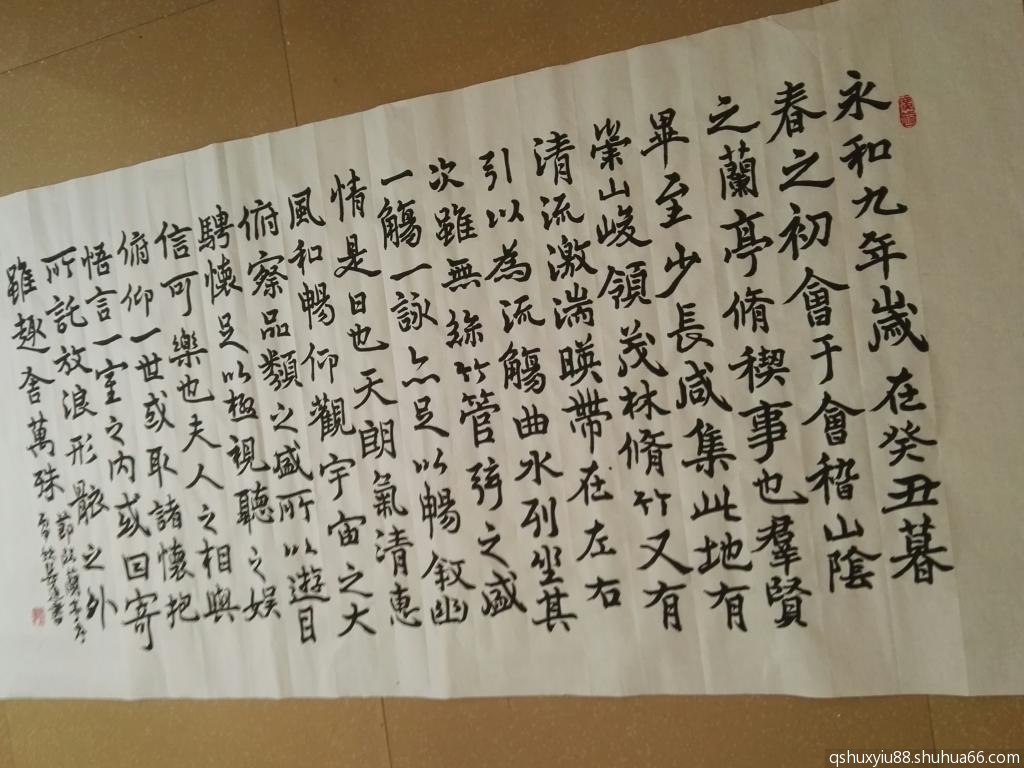 永和九年歲在癸丑暮
春之初會于會稽山陰
之蘭亭脩稧事也羣賢
畢至少長咸集此地有
崇山峻領茂林脩竹又有
清流激湍暎帶在左右
引以為流觴曲水列坐其
次雖無絲竹管弦之盛
一觴一詠亦足以暢敘幽
情是日也天朗氣清惠
風和暢仰觀宇宙之大
俯察品類之盛所以遊目
騁懷足以極視聽之娛
信可樂也夫人之相與
俯仰一世或取諸懷抱
悟言一室之內或因寄
所託放浪形骸之外
雖趣舍萬殊
節臨蘭亭序
書
qshuxyiu88.shuhua66.com